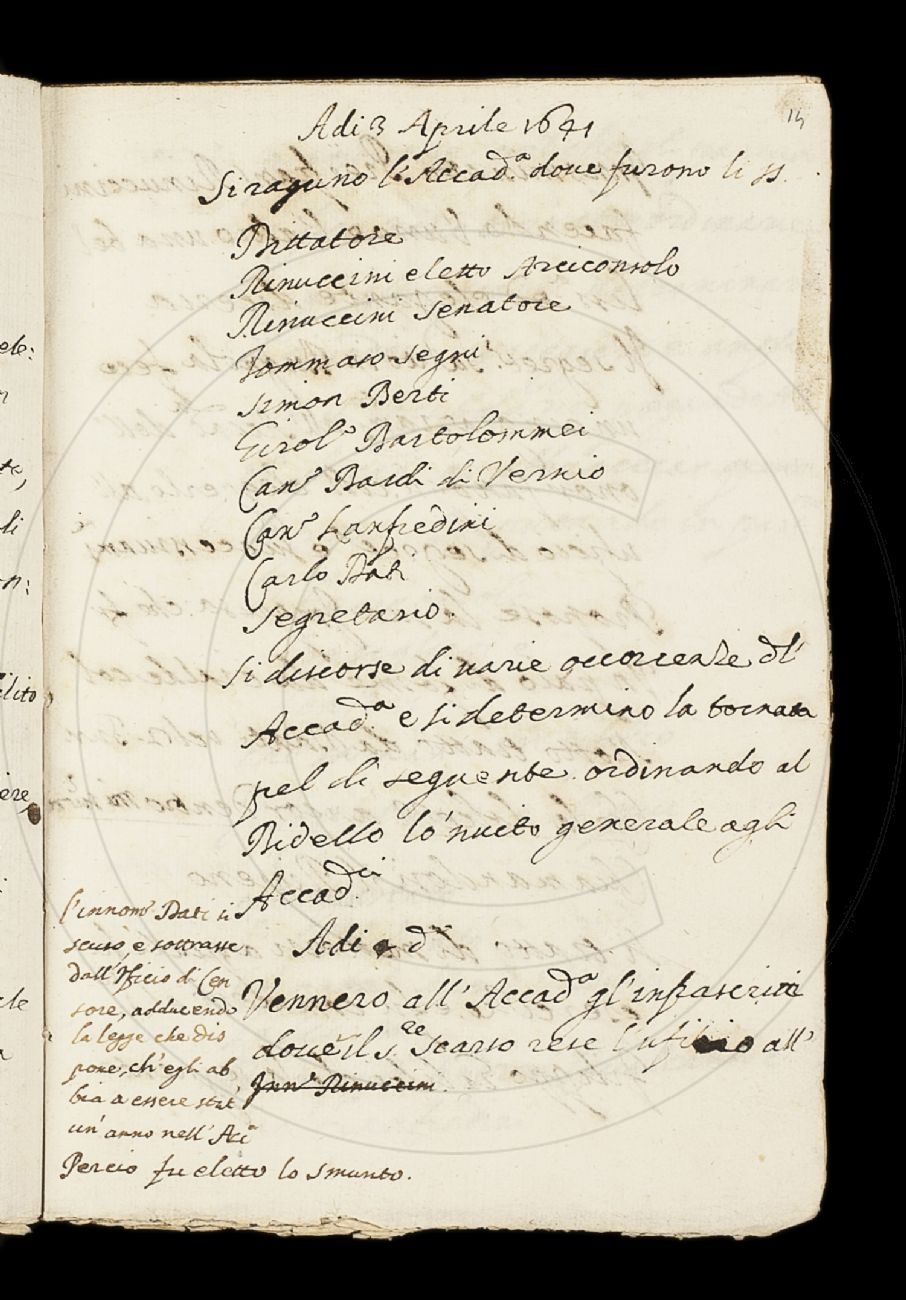 14
Adi 3 Aprile 1641
Si raguno l'Accad.a doue furono li ss.
Dittatore
Rinuccini eletto Arciconsolo
Rinuccini Senatore
Tommaso Segni
Simon Berti
Girol.o Bartolommei
Can.o Bardi di Vernio
Can.o Lanfredini
Carlo Dati
Segretario
Si discorse di uarie occorrenze dl'
Accad.a e si determino la tornata
pel dì seguente ordinando al
Bidello lo'nuito generale agli
Accad.ci
Adi d.o
Vennero all'Accad.a gl'infrascritti
doue il s.re Scarso rese l'ufizio all'
Inn.o Rinuccini
l'innom.o Dati si
scusò, e sottrasse
dall'Vficio di Cen
sore, adducendo
la legge che dis
pone, ch'egli ab
bia a essere stat
un'anno nell'Acc.a
Percio fu eletto lo Smunto.
ele:
li
on:
lito
ere,